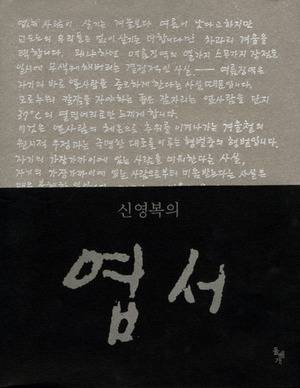 없는 사람이 살기는 겨울보다 여름이 낫다고 하지만
교도소의 우리들은 없이 살기는 더합니다만 차라리 겨울을
택합니다. 왜냐하면 여름징역의 열가지 스무가지 장점을
일시에 무색케해버리는 결정적인 사실 — 여름징역은
자기의 바로 옆사람을 증오하게 한다는 사실 때문입니다.
모로 누워 칼잠을 자야하는 좁은 잠자리는 옆사람을 단지
37℃의 열덩어리로만 느끼게 합니다.
이것은 옆사람의 체온으로 추위를 이겨나가는 겨울철의
원시적 우정과는 극명한 대조를 이루는 형벌중의 형벌입니다.
자기의 가장 가까이에 있는 사람을 미워한다는 사실,
자기의 가장 가까이에 있는 사람으로부터 미움받는다는 사실은
신영복의
엽서
돌베개